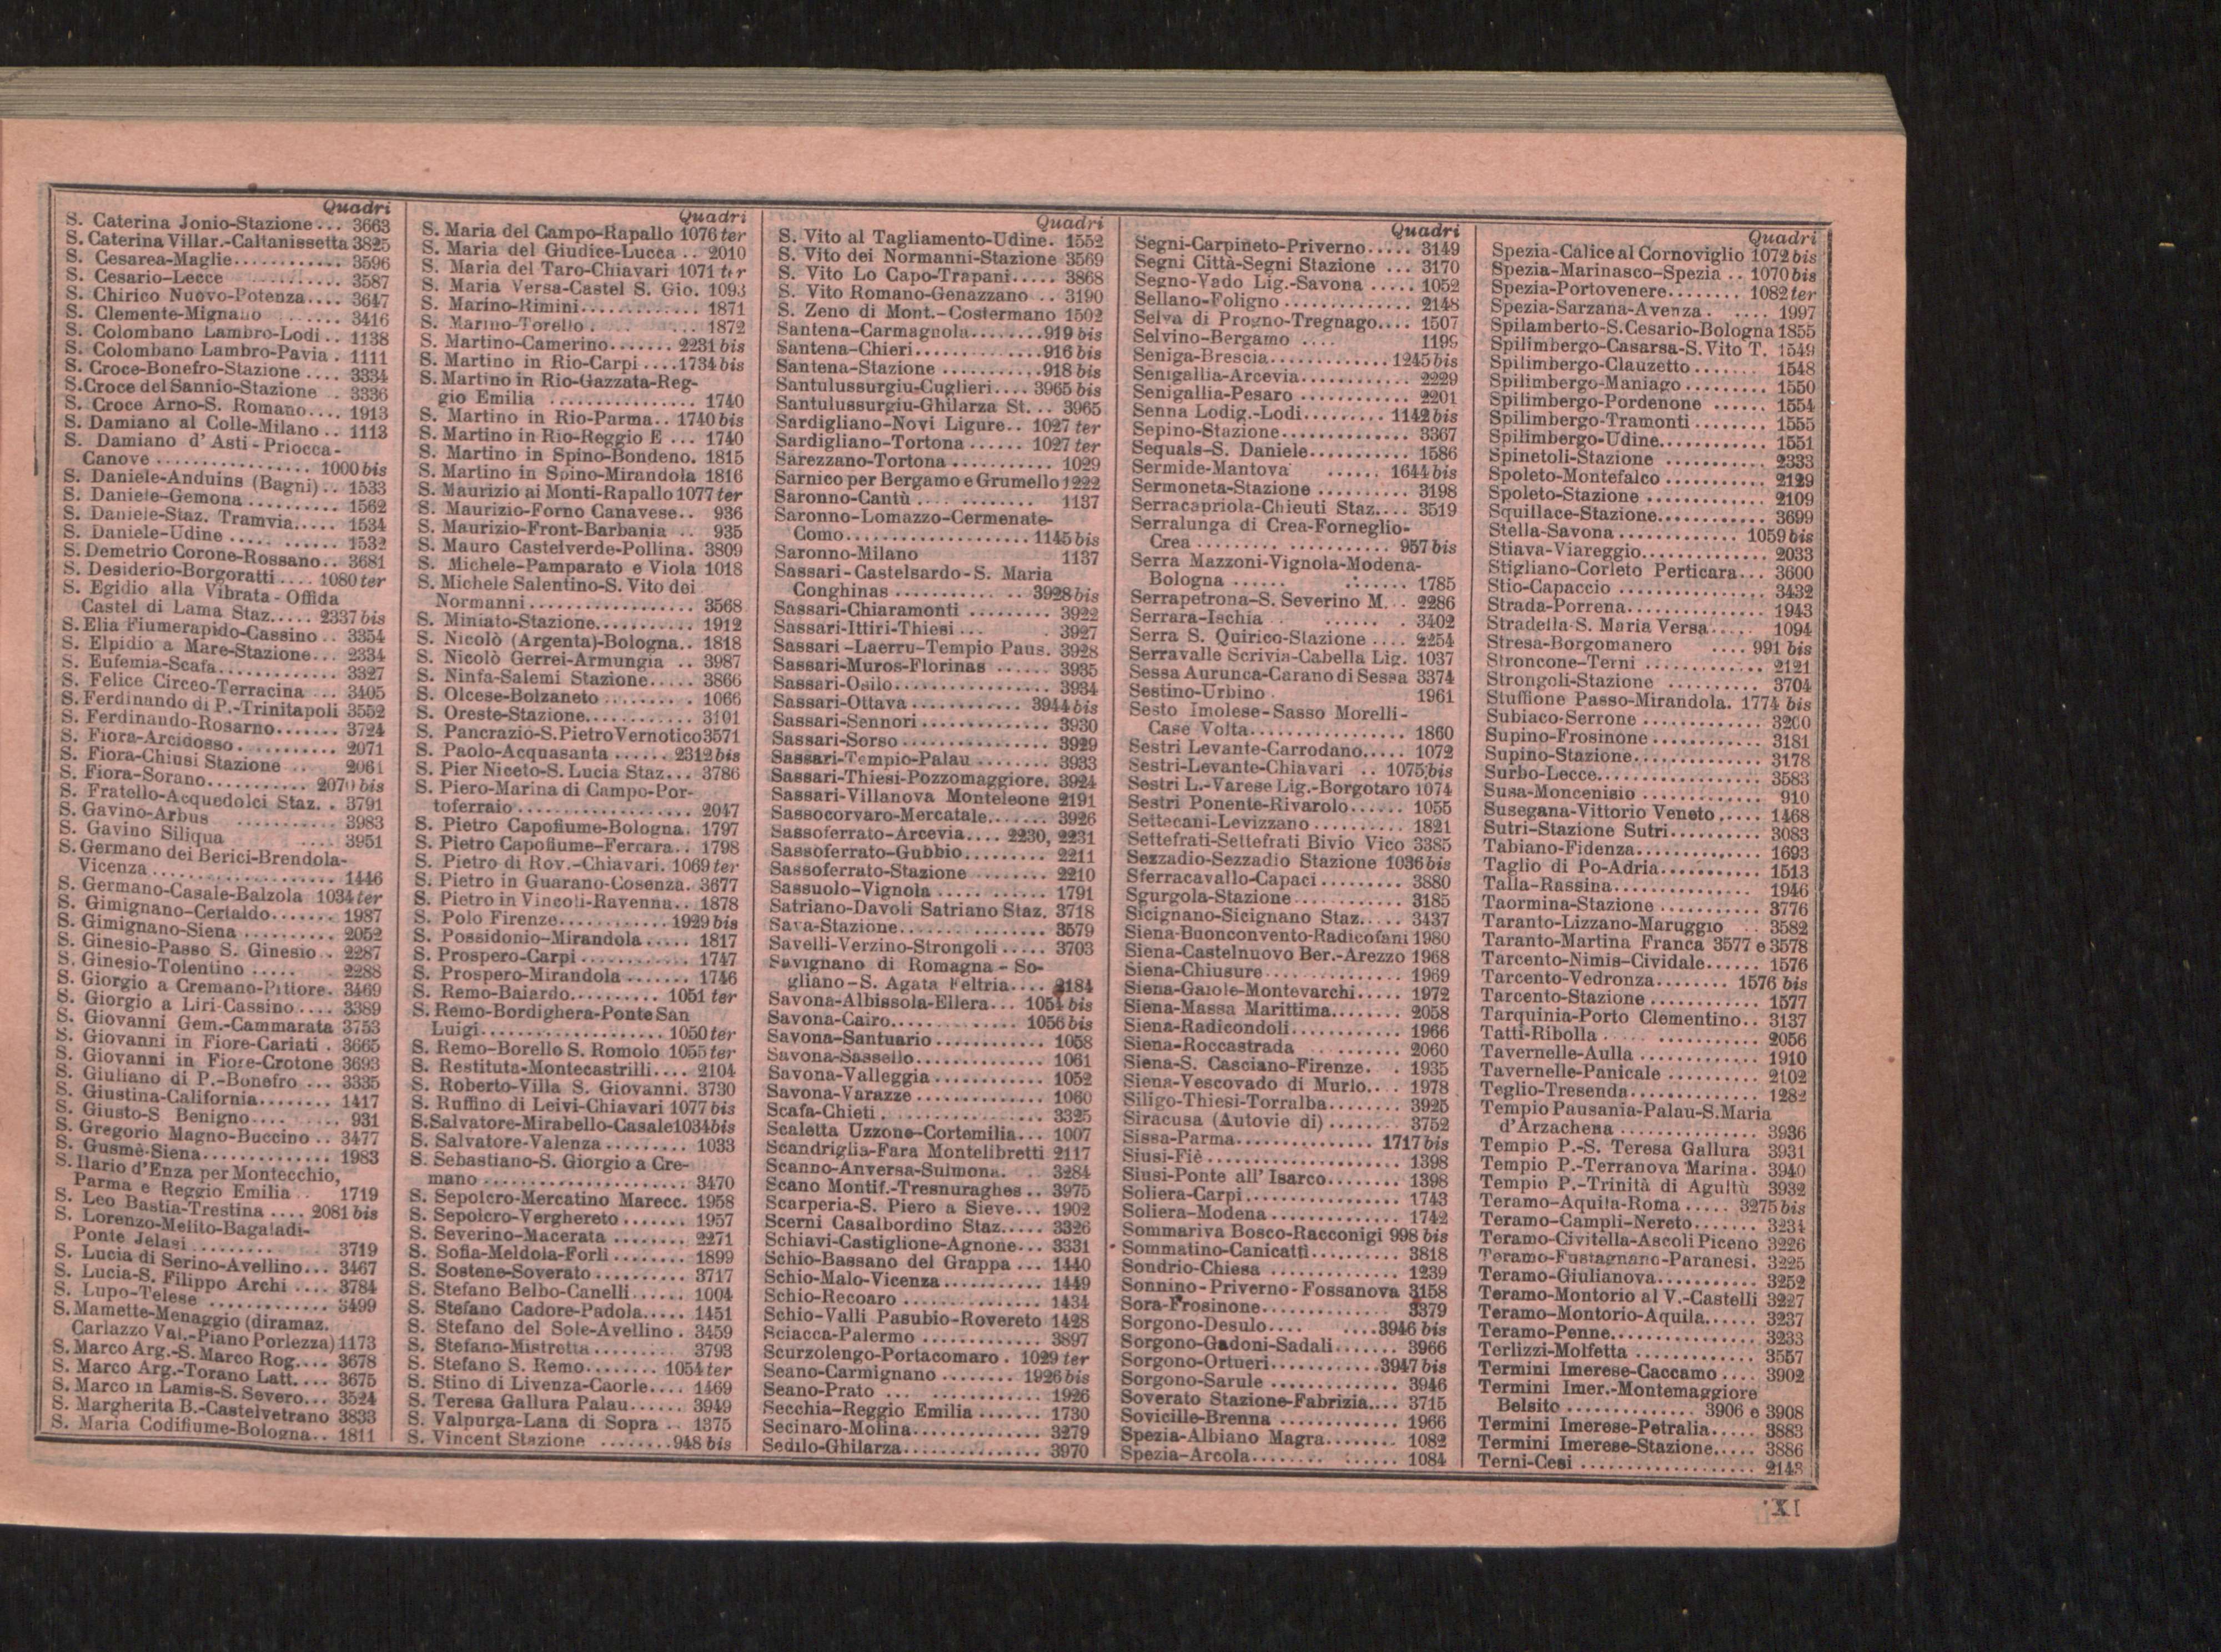 Quadri
S. Caterina Jonio-Stazione... 3663
S. Caterina Villar.-Caltanissetta 3825
S. Cesarea-Maglie............ 3596
S. Cesario-Lecce ............ 3587
S. Chirico Nuovo-Potenza.... 3647
S. Clemente-Mignano ...... 3416
S. Colombano Lambro-Lodi.. 1138
S. Colombano Lambro-Pavia. 1111
S. Croce-Bonefro-Stazione .... 3334
S. Croce del Sannio-Stazione .. 3336
S. Croce Arno-S. Romano.... 1913
S. Damiano al Colle-Milano.. 1113
S. Damiano d'Asti-Priocca-
Canove ................ 1000 bis
S. Daniele-Anduins (Bagni).. 1533
S. Daniele-Gemona .......... 1562
S. Daniele-Staz. Tramvia..... 1534
S. Daniele-Udine ..... ...... 1532
S. Demetrio Corone-Rossano.. 3681
S. Desiderio-Borgoratti.... 1080 ter
S. Egidio alla Vibrata-Offida
Castel di Lama Staz..... 2337 bis
S. Elia Fiumerapido-Cassino.. 3354
S. Elpidio a Mare-Stazione... 2334
S. Eufemia-Scafa............ 3327
S. Felice Circeo-Terracina ... 3405
S. Ferdinando di P.-Trinitapoli 3552
S. Ferdinando-Rosarno....... 3724
S. Fiora-Arcidosso.......... 2071
S. Fiora-Chiusi Stazione ... 2061
S. Fiora-Sorano........... 2070 bis
S. Fratello-Acquedolci Staz. . 3791
S. Gavino-Arbus ........... 3983
S. Gavino Siliqua .... 3951
S. Germano dei Berici-Brendola-
Vicenza ................... 1446
S. Germano-Casale-Balzola 1034 ter
S. Gimignano-Certaldo....... 1987
S. Gimignano-Siena .......... 2052
S. Ginesio-Passo S. Ginesio.. 2287
S. Ginesio-Tolentino ..... 2288
S. Giorgio a Cremano-Pittore. 3469
S. Giorgio a Liri-Cassino.... 3389
S. Giovanni Gem.-Cammarata 3753
S. Giovanni in Fiore-Cariati. 3665
S. Giovanni in Fiore-Crotone 3693
S. Giuliano di P.-Bonefro ... 3335
S. Giustina-California........ 1417
S. Giusto-S Benigno.... ..... 931
S. Gregorio Magno-Buccino.. 3477
S. Gusmè-Siena............. 1983
S. Ilario d'Enza per Montecchio,
Parma e Reggio Emilia .. 1719
S. Leo Bastia-Trestina .... 2081 bis
S. Lorenzo-Melito-Bagaladi-
Ponte Jelasi ......... 3719
S. Lucia di Serino-Avellino... 3467
S. Lucia-S. Filippo Archi .... 3784
S. Lupo-Telese ............. 3499
S. Mamette-Menaggio (diramaz.
Carlazzo Val.-Piano Porlezza) 1173
S. Marco Arg.-S. Marco Rog.... 3678
S. Marco Arg.-Torano Latt.... 3675
S. Marco in Lamis-S. Severo... 3524
S. Margherita B.-Castelvetrano 3833
S. Maria Codifiume-Bologna.. 1811
Quadri
S. Maria del Campo-Rapallo 1076 ter
S. Maria del Giudice-Lucca .. 2010
S. Maria del Taro-Chiavari 1071 ter
S. Maria Versa-Castel S. Gio. 1093
S. Marino-Rimini............. 1871
S. Marino-Torello. ..... 1872
S. Martino-Camerino....... 2231 bis
S. Martino in Rio-Carpi ....1734 bis
S. Martino in Rio-Gazzata-Reg-
gio Emilia ................ 1740
S. Martino in Rio-Parma.. 1740 bis
S. Martino in Rio-Reggio E ... 1740
S. Martino in Spino-Bondeno. 1815
S. Martino in Spino-Mirandola 1816
S. Maurizio ai Monti-Rapallo 1077 ter
S. Maurizio-Forno Canavese.. 936
S. Maurizio-Front-Barbania .. 935
S. Mauro Castelverde-Pollina. 3809
S. Michele-Pamparato e Viola 1018
S. Michele Salentino-S. Vito dei
Normanni................. 3568
S. Miniato-Stazione........... 1912
S. Nicolò (Argenta)-Bologna.. 1818
S. Nicolò Gerrei-Armungia .. 3987
S. Ninfa-Salemi Stazione..... 3866
S. Olcese-Bolzaneto ......... 1066
S. Oreste-Stazione............ 3101
S. Pancrazio-S. Pietro Vernotico 3571
S. Paolo-Acquasanta ...... 2312 bis
S. Pier Niceto-S. Lucia Staz... 3786
S. Piero-Marina di Campo-Por-
toferraio.................. 2047
S. Pietro Capofiume-Bologna. 1797
S. Pietro Capofiume-Ferrara.. 1798
S. Pietro di Rov.-Chiavari. 1069 ter
S. Pietro in Guarano-Cosenza. 3677
S. Pietro in Vincoli-Ravenna.. 1878
S. Polo Firenze............1929 bis
S. Possidonio-Mirandola ..... 1817
S. Prospero-Carpi ............ 1747
S. Prospero-Mirandola ....... 1746
S. Remo-Baiardo.......... 1051 ter
S. Remo-Bordighera-Ponte San
Luigi................... 1050 ter
S. Remo-Borello S. Romolo 1055 ter
S. Restituta-Montecastrilli.... 2104
S. Roberto-Villa S. Giovanni. 3730
S. Ruffino di Leivi-Chiavari 1077 bis
S. Salvatore-Mirabello-Casale 1034 bis
S. Salvatore-Valenza ......... 1033
S. Sebastiano-S. Giorgio a Cre-
mano ..................... 3470
S. Sepolcro-Mercatino Marecc. 1958
S. Sepolcro-Verghereto ....... 1957
S. Severino-Macerata ........ 2271
S. Sofia-Meldola-Forlì ........ 1899
S. Sostene-Soverato .......... 3717
S. Stefano Belbo-Canelli...... 1004
S. Stefano Cadore-Padola..... 1451
S. Stefano del Sole-Avellino. 3459
S. Stefano-Mistretta ......... 3793
S. Stefano S. Remo........ 1054 ter
S. Stino di Livenza-Caorle.... 1469
S. Teresa Gallura Palau...... 3949
S. Valpurga-Lana di Sopra .. 1375
S. Vincent Stazione ........948 bis
Quadri
S. Vito al Tagliamento-Udine. 1552
S. Vito dei Normanni-Stazione 3569
S. Vito Lo Capo-Trapani..... 3868
S. Vito Romano-Genazzano .. 3190
S. Zeno di Mont.-Costermano 1502
Santena-Carmagnola........919 bis
Santena-Chieri..............916 bis
Santena-Stazione ...........918 bis
Santulussurgiu-Cuglieri.... 3965 bis
Santulussurgiu-Ghilarza St... 3965
Sardigliano-Novi Ligure.. 1027 ter
Sardigliano-Tortona ...... 1027 ter
Sarezzano-Tortona ........... 1029
Sarnico per Bergamo e Grumello 1222
Saronno-Cantù .... ......... 1137
Saronno-Lomazzo-Cermenate-
Como....................1145 bis
Saronno-Milano 1137
Sassari-Castelsardo-S. Maria
Conghinas ........... 3928 bis
Sassari-Chiaramonti ......... 3922
Sassari-Ittiri-Thiesi ... . 3927
Sassari-Laerru-Tempio Paus. 3928
Sassari-Muros-Florinas ...... 3935
Sassari-Osilo................. 3934
Sassari-Ottava ............ 3944 bis
Sassari-Sennori .............. 3930
Sassari-Sorso ................ 3929
Sassari-Tempio-Palau ........ 3933
Sassari-Thiesi-Pozzomaggiore. 3924
Sassari-Villanova Monteleone 2191
Sassocorvaro-Mercatale....... 3926
Sassoferrato-Arcevia.... 2230, 2231
Sassoferrato-Gubbio......... 2211
Sassoferrato-Stazione ........ 2210
Sassuolo-Vignola ............ 1791
Satriano-Davoli Satriano Staz. 3718
Sava-Stazione................ 3579
Savelli-Verzino-Strongoli ..... 3703
Savignano di Romagna-So-
gliano-S. Agata Feltria.... 2184
Savona-Albissola-Ellera... 1054 bis
Savona-Cairo............. 1056 bis
Savona-Santuario ............ 1058
Savona-Sassello.............. 1061
Savona-Valleggia ............ 1052
Savona-Varazze .............. 1060
Scafa-Chieti. ................ 3325
Scaletta Uzzone-Cortemilia... 1007
Scandriglia-Fara Montelibretti 2117
Scanno-Anversa-Sulmona. .. 3284
Scano Montif.-Tresnuraghes .. 3975
Scarperia-S. Piero a Sieve... 1902
Scerni Casalbordino Staz..... 3326
Schiavi-Castiglione-Agnone... 3331
Schio-Bassano del Grappa ... 1440
Schio-Malo-Vicenza ........... 1449
Schio-Recoaro ............... 1434
Schio-Valli Pasubio-Rovereto 1428
Sciacca-Palermo ............. 3897
Scurzolengo-Portacomaro. 1029 ter
Seano-Carmignano ........ 1926 bis
Seano-Prato ... ............ 1926
Secchia-Reggio Emilia ....... 1730
Secinaro-Molina.............. 3279
Sedilo-Ghilarza............... 3970
Quadri
Segni-Carpineto-Priverno..... 3149
Segni Città-Segni Stazione ... 3170
Segno-Vado Lig.-Savona ..... 1052
Sellano-Foligno .............. 2148
Selva di Progno-Tregnago.... 1507
Selvino-Bergamo .... 1199
Seniga-Brescia.............1245 bis
Senigallia-Arcevia............ 2229
Senigallia-Pesaro ............ 2201
Senna Lodig.-Lodi......... 1142 bis
Sepino-Stazione.............. 3367
Sequals-S. Daniele........... 1586
Sermide-Mantova ...... 1644 bis
Sermoneta-Stazione .......... 3198
Serracapriola-Chieuti Staz.... 3519
Serralunga di Crea-Forneglio-
Crea ........ ........... 957 bis
Serra Mazzoni-Vignola-Modena-
Bologna ...... ....... 1785
Serrapetrona-S. Severino M. . 2286
Serrara-Ischia ...... . 3402
Serra S. Quirico-Stazione .... 2254
Serravalle Scrivia-Cabella Lig. 1037
Sessa Aurunca-Carano di Sessa 3374
Sestino-Urbino. 1961
Sesto Imolese-Sasso Morelli-
Case Volta................. 1860
Sestri Levante-Carrodano..... 1072
Sestri-Levante-Chiavari .. 1075 bis
Sestri L.-Varese Lig.-Borgotaro 1074
Sestri Ponente-Rivarolo...... 1055
Settecani-Levizzano .......... 1821
Settefrati-Settefrati Bivio Vico 3385
Sezzadio-Sezzadio Stazione 1036 bis
Sferracavallo-Capaci ......... 3880
Sgurgola-Stazione............ 3185
Sicignano-Sicignano Staz..... 3437
Siena-Buonconvento-Radicofani 1980
Siena-Castelnuovo Ber.-Arezzo 1968
Siena-Chiusure............... 1969
Siena-Gaiole-Montevarchi..... 1972
Siena-Massa Marittima........ 2058
Siena-Radicondoli............ 1966
Siena-Roccastrada ........ 2060
Siena-S. Casciano-Firenze. . 1935
Siena-Vescovado di Murlo... . 1978
Siligo-Thiesi-Torralba........ 3925
Siracusa (Autovie di) ........ 3752
Sissa-Parma............... 1717 bis
Siusi-Fiè .................... 1398
Siusi-Ponte all'Isarco........ 1398
Soliera-Carpi................. 1743
Soliera-Modena .............. 1742
Sommariva Bosco-Racconigi 998 bis
Sommatino-Canicattì.......... 3818
Sondrio-Chiesa .............. 1239
Sonnino-Priverno-Fossanova 3158
Sora-Frosinone............... 3379
Sorgono-Desulo.... ....3946 bis
Sorgono-Gadoni-Sadali....... 3966
Sorgono-Ortueri............3947 bis
Sorgono-Sarule .............. 3946
Soverato Stazione-Fabrizia.... 3715
Sovicille-Brenna ............. 1966
Spezia-Albiano Magra........ 1082
Spezia-Arcola........ ...... 1084
Quadri
Spezia-Calice al Cornoviglio 1072 bis
Spezia-Marinasco-Spezia .. 1070 bis
Spezia-Portovenere........ 1082 ter
Spezia-Sarzana-Avenza. .... 1997
Spilamberto-S. Cesario-Bologna 1855
Spilimbergo-Casarsa-S. Vito T. 1549
Spilimbergo-Clauzetto ....... 1548
Spilimbergo-Maniago ......... 1550
Spilimbergo-Pordenone ...... 1554
Spilimbergo-Tramonti ........ 1555
Spilimbergo-Udine............ 1551
Spinetoli-Stazione ........... 2333
Spoleto-Montefalco ........... 2129
Spoleto-Stazione ............. 2109
Squillace-Stazione............ 3699
Stella-Savona ............. 1059 bis
Stiava-Viareggio.............. 2033
Stigliano-Corleto Perticara... 3600
Stio-Capaccio ................ 3432
Strada-Porrena............... 1943
Stradella-S. Maria Versa..... 1094
Stresa-Borgomanero ....991 bis
Stroncone-Terni ............. 2121
Strongoli-Stazione ......... 3704
Stuffione Passo-Mirandola. 1774 bis
Subiaco-Serrone ............. 3200
Supino-Frosinone ............ 3181
Supino-Stazione.............. 3178
Surbo-Lecce.................. 3583
Susa-Moncenisio ............. 910
Susegana-Vittorio Veneto .... 1468
Sutri-Stazione Sutri.......... 3083
Tabiano-Fidenza............. 1693
Taglio di Po-Adria........... 1513
Talla-Rassina............... 1946
Taormina-Stazione ........... 3776
Taranto-Lizzano-Maruggio .. 3582
Taranto-Martina Franca 3577 e 3578
Tarcento-Nimis-Cividale...... 1576
Tarcento-Vedronza........ 1576 bis
Tarcento-Stazione ............ 1577
Tarquinia-Porto Clementino.. 3137
Tatti-Ribolla ............. 2056
Tavernelle-Aulla ............. 1910
Tavernelle-Panicale .......... 2102
Teglio-Tresenda.............. 1282
Tempio Pausania-Palau-S. Maria
d'Arzachena ............... 3936
Tempio P.-S. Teresa Gallura 3931
Tempio P.-Terranova Marina. 3940
Tempio P.-Trinità di Agultù 3932
Teramo-Aquila-Roma ..... 3275 bis
Teramo-Campli-Nereto....... 3234
Teramo-Civitella-Ascoli Piceno 3226
Teramo-Fustagnano-Paranesi. 3225
Teramo-Giulianova........... 3252
Teramo-Montorio al V.-Castelli 3227
Teramo-Montorio-Aquila...... 3237
Teramo-Penne................ 3233
Terlizzi-Molfetta ............. 3557
Termini Imerese-Caccamo .... 3902
Termini Imer.-Montemaggiore
Belsito ............. 3906 e 3908
Termini Imerese-Petralia..... 3883
Termini Imerese-Stazione..... 3886
Terni-Cesi ................... 2143
XI